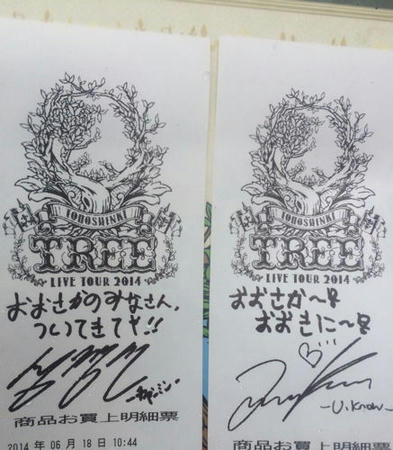 TOHOSHINKI
TREE
LIVE TOUR 2014
おおさかのみなさん、
ついてきてや!!
商品お買上明細票
2014 年 06 月 18 日 10:44
TOHOSHINKI
TREE
LIVE TOUR 2014
おおさか〜!
おおきに〜!
-U.Know-
商品お買上明細票